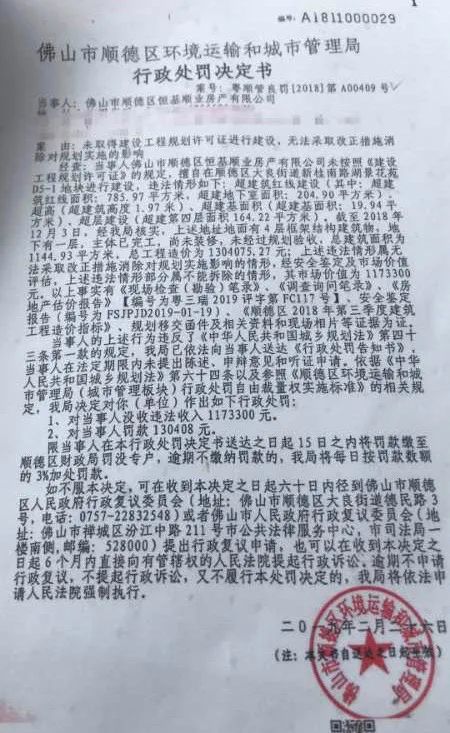 编号: A1811000029
佛山市顺德区环境运输和城市管理局
行政处罚决定书
案号：粤顺管良罚[2018]第A00409号
当事人：佛山市顺德区恒基顺业房产有限公司
案 由：未取得建设工程规划许可证进行建设，无法采取改正措施消
除对规划实施的影响
经查：当事人佛山市顺德区恒基顺业房产有限公司未按照《建设
工程规划许可证》的规定，擅自在顺德区大良街道新桂南路湖景花苑
D5-1地块进行建设，违法情形如下：超建筑红线建设（其中：超建
筑红线面积：785.97平方米，超建地下室面积：204.90平方米）、
超高（超建筑高度1.97米）、超建基面积（超建基面积：19.94平
方米）、超层建设（超建第四层面积164.22平方米）。截至2018年
12月3日，经我局核实，上述地址地面有4层框架结构建筑物，地
下有一层，主体已完工，尚未装修，未经过规划验收，总建筑面积为
1144.93平方米，总工程造价为1304075.27元；上述违法情形属无
法采取改正措施消除对规划实施影响的情形，经安全鉴定及市场价值
评估，上述违法情形部分属不能拆除的情形，其市场价值为1173300
元。以上事实有《现场检查（勘验）笔录》、《调查询问笔录》、《房
地产估价报告》【编号为粤三瑞2019评字第FC117号】、安全鉴定
报告（编号为FSJPJD2019-01-19）、《顺德区2018年第三季度建筑
工程造价指标》、规划移交函件及相关资料和现场相片等证据为证。
当事人的上述行为违反了《中华人民共和国城乡规划法》第四十
三条第一款的规定，我局已依法向当事人送达《行政处罚告知书》，
当事人在法定期限内未提出陈述、申辩意见和听证申请，依据《中华
人民共和国城乡规划法》第六十四条以及参照《顺德区环境运输和城
市管理局（城市管理板块）行政处罚自由裁量权实施标准》的相关规
定，我局决定对你（单位）作出如下行政处罚：
1、对当事人没收违法收入1173300元。
2、对当事人罚款130408元。
限当事人在本行政处罚决定书送达之日起15日之内将罚款缴至
顺德区财政局罚没专户，逾期不缴纳罚款的，我局将每日按罚款数额
的3%加处罚款。
如不服本决定，可在收到本决定之日起六十日内径向佛山市顺德
区人民政府行政复议委员会（地址：佛山市顺德区大良街道德民路3
号，电话：0757-22832548）或者佛山市人民政府行政复议委员会（地
址：佛山市禅城区汾江中路211号市公共法律服务中心，市司法局一
楼南侧，邮编：528000）提出行政复议申请，也可以在收到本决定之
日起6个月内直接向有管辖权的人民法院提起行政诉讼。逾期不申请
行政复议，不提起行政诉讼，又不履行本处罚决定的，我局将依法申
请人民法院强制执行。
二〇一九年二月二十六日
（注：本文书自送达之日起生效）
佛山市顺德区环境运输和城市管理局